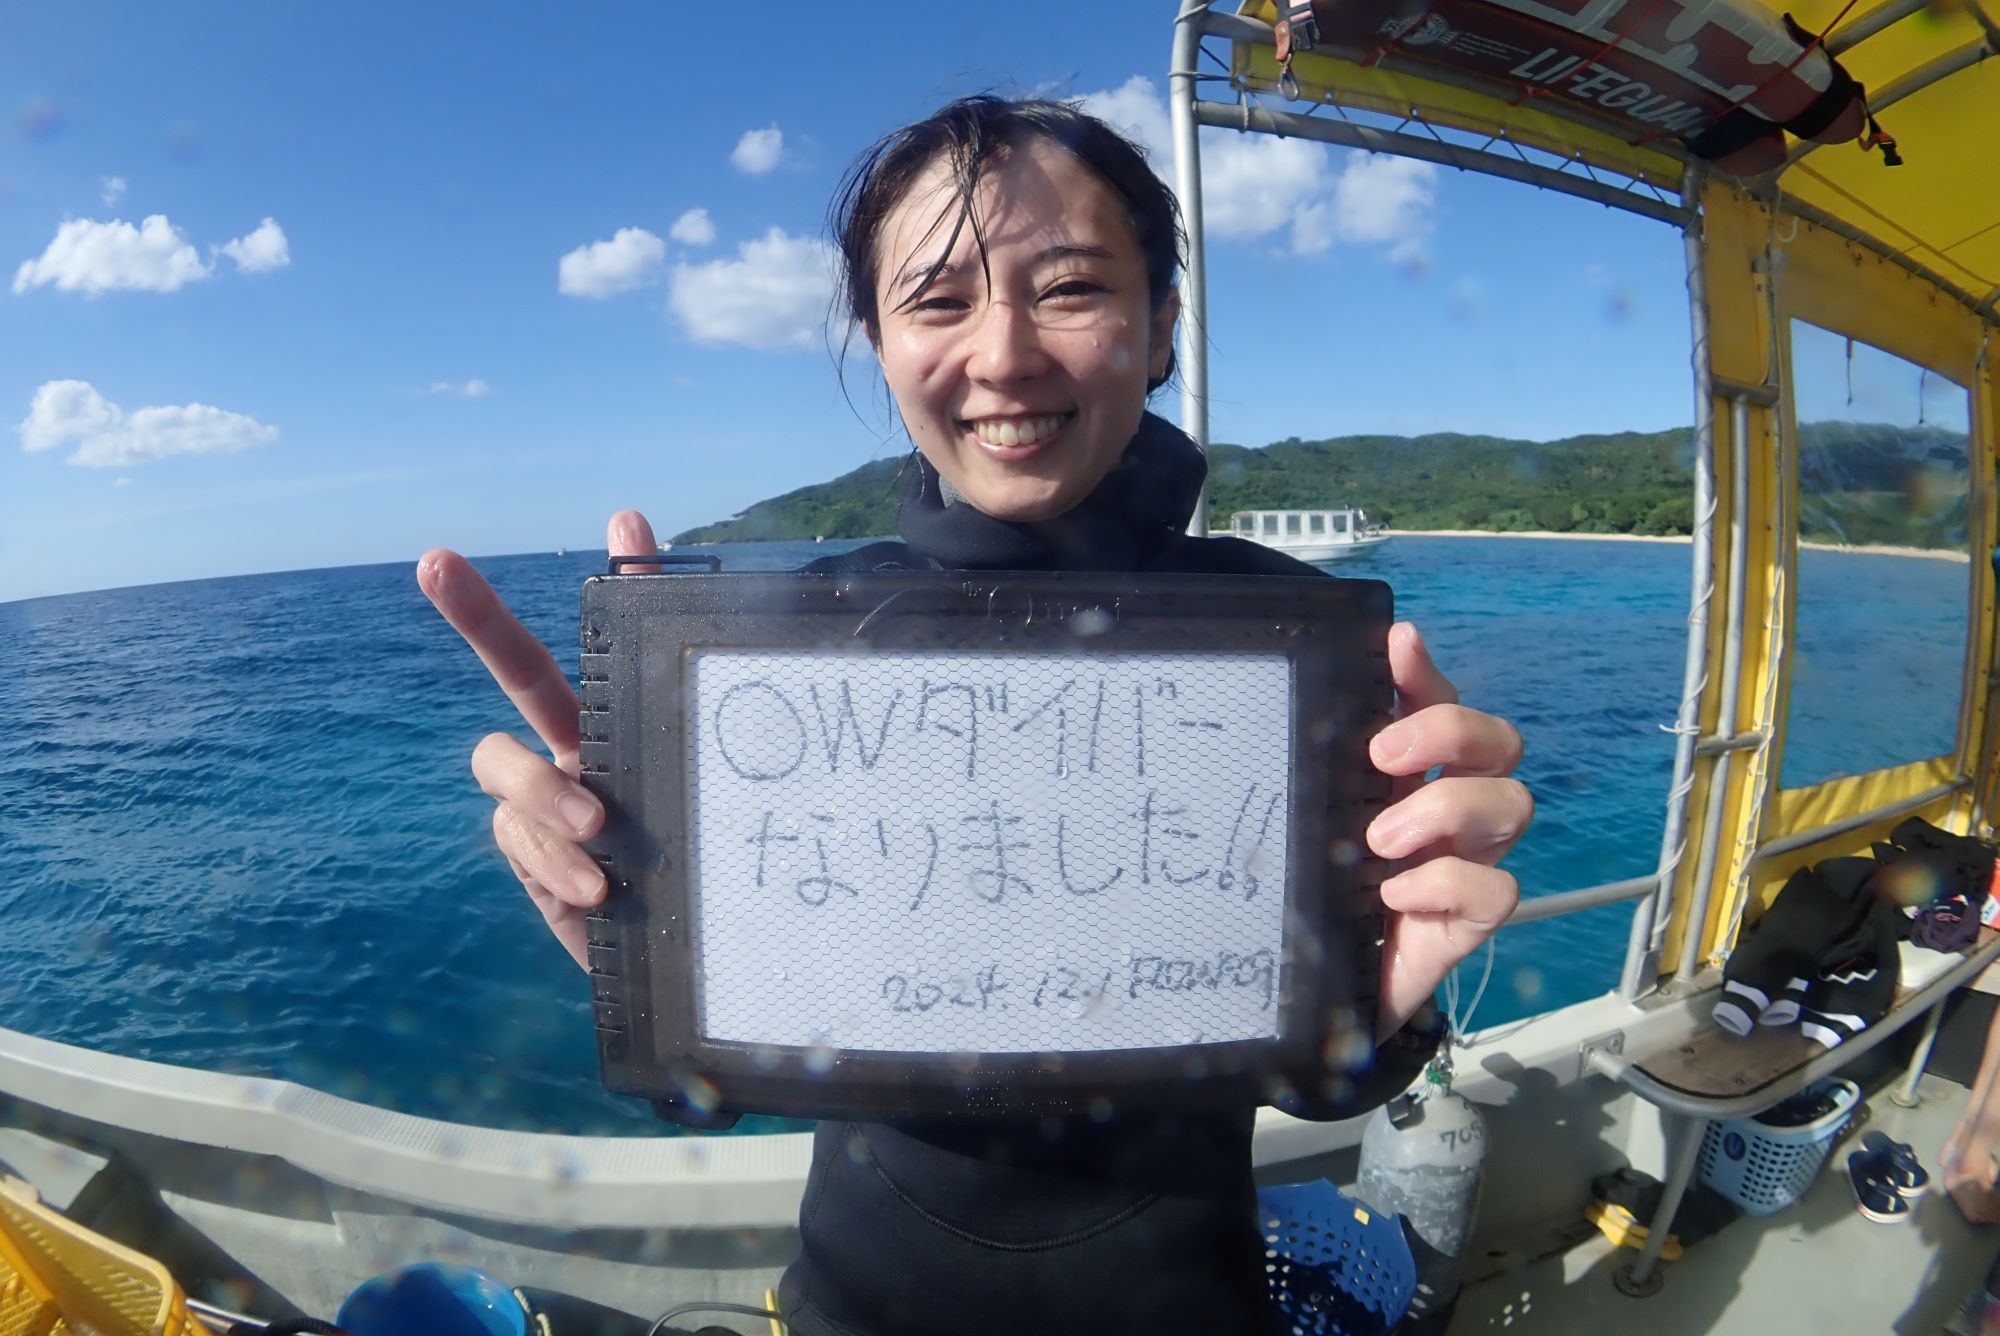 LIFEGUA
OWダイバー
なりました!!
2024.12.1
705